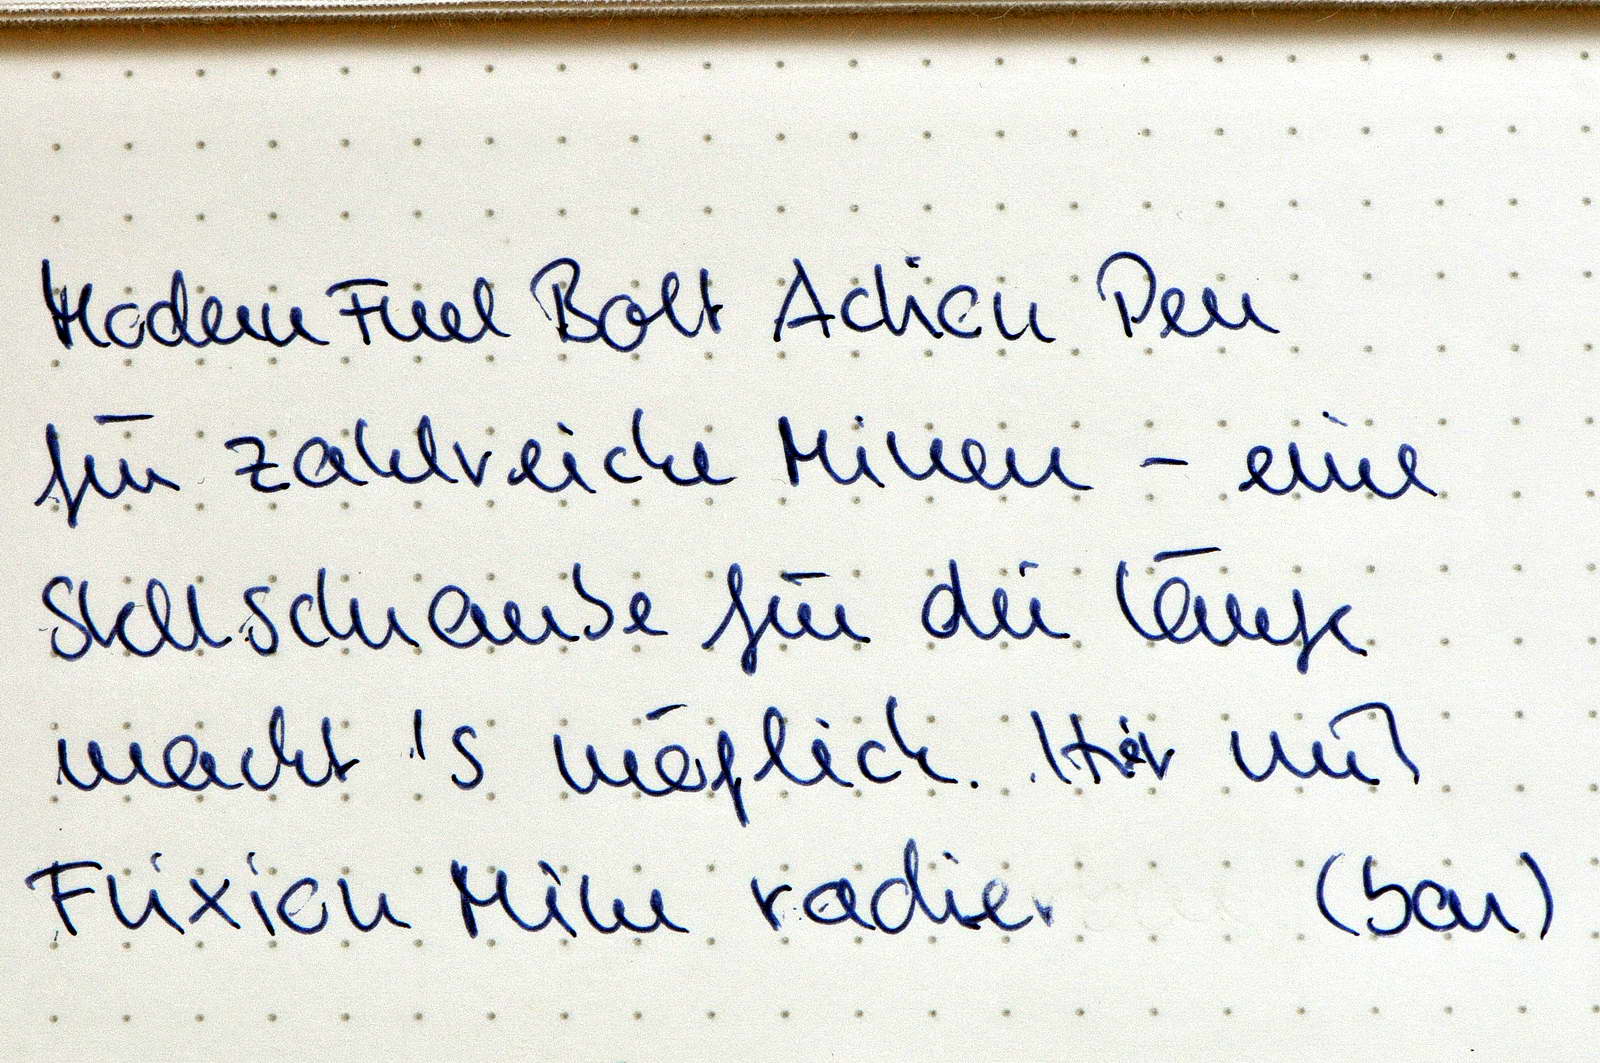 Modern Fuel Bolt Action Pen
für zahlreiche Minen – eine
Stellschraube für die Länge
macht 's möglich. Hier mit
Frixion Mine radier (bar)